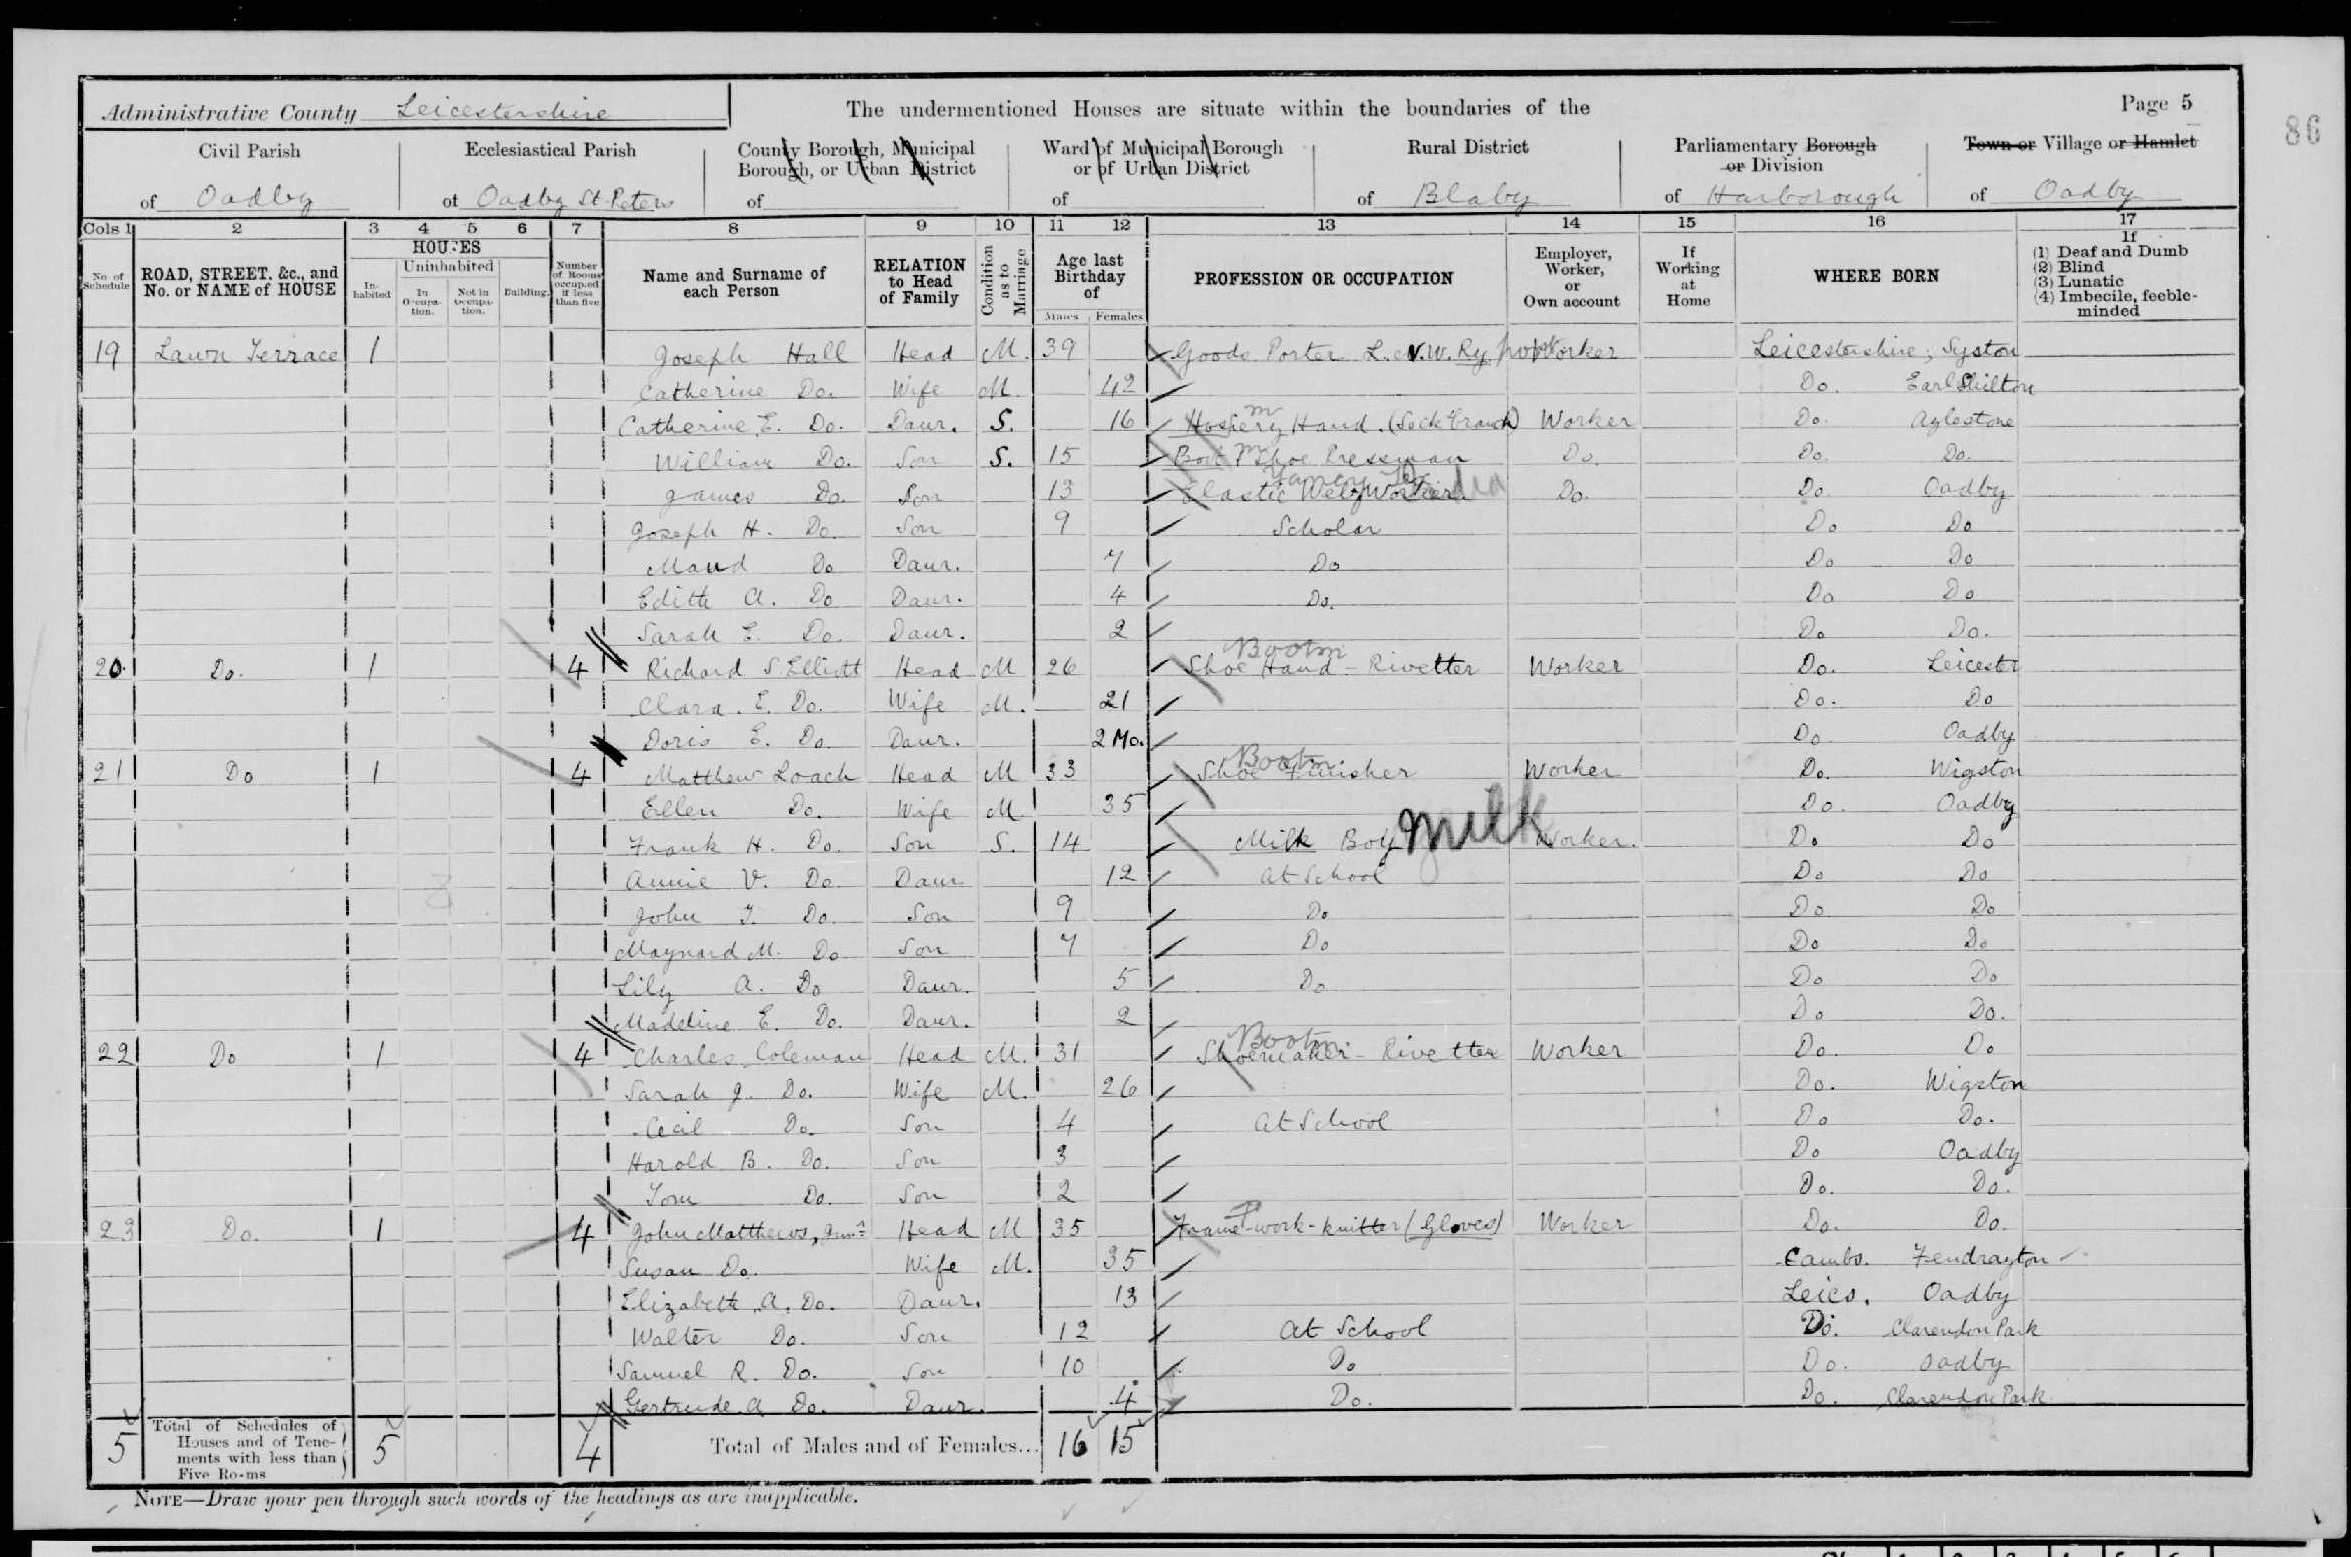 Administrative County Leicestershire
The undermentioned Houses are situate within the boundaries of the
Page 5
86
Civil Parish of Oadby
Ecclesiastical Parish of Oadby St. Peters
County Borough, Municipal Borough, or Urban District of
Ward of Municipal Borough or of Urban District of
Rural District of Blaby
Parliamentary Borough or Division of Harborough
Town or Village or Hamlet of Oadby
Cols 1 2 3 4 5 6 7 8 9 10 11 12 13 14 15 16 17
No. of Schedule
ROAD, STREET, &c., and No. or NAME of HOUSE
HOUSES
Inhabited
Uninhabited
In Occupation.
Not in Occupation.
Building.
Number of Rooms occupied if less than five
Name and Surname of each Person
RELATION to Head of Family
Condition as to Marriage
Age last Birthday of
Males Females
PROFESSION OR OCCUPATION
Employer, Worker, or Own account
If Working at Home
WHERE BORN
If (1) Deaf and Dumb (2) Blind (3) Lunatic (4) Imbecile, feeble-minded
19 Lawn Terrace 1 Joseph Hall Head M. 39 Goods Porter L.N.W. Ry. Worker Leicestershire; Syston
Catherine Do. Wife M. 42 Do. Earl Shilton
Catherine E. Do. Daur. S. 16 Hosiery Hand. (Sock branch) Worker Do. Aylestone
William Do. Son S. 15 Boot Shoe Pressman Do. Do. Do.
James Do. Son 13 Elastic Web Worker Do. Do. Oadby
Joseph H. Do. Son 9 Scholar Do Do
Maud Do Daur. 7 Do Do Do
Edith A. Do Daur. 4 Do. Do Do
Sarah E. Do. Daur. 2 Do Do.
Bootm
20. Do. 1 4 Richard S. Elliott Head M 26 Shoe Hand - Rivetter Worker Do. Leicester
Clara. E. Do. Wife M. 21 Do. Do
Doris E. Do. Daur. 2 Mo. Do Oadby
Bootm
21 Do 1 4 Matthew Loach Head M 33 Shoe Finisher Worker Do. Wigston
Ellen Do. Wife M 35 Do. Oadby
Frank H. Do. Son S. 14 Milk Boy milk Worker. Do Do
Annie V. Do. Daur 12 At School Do Do
John T. Do. Son 9 Do Do Do
Maynard M. Do Son 7 Do Do Do
Lily A. Do Daur. 5 Do Do Do
Madeline E. Do. Daur. 2 Do Do.
Bootm
22 Do 1 4 Charles Coleman Head M. 31 Shoemaker - Rivetter Worker Do. Do
Sarah J. Do. Wife M. 26 Do. Wigston
Cecil Do. Son 4 At School Do Do.
Harold B. Do. Son 3 Do Oadby
Tom Do. Son 2 Do. Do.
23 Do. 1 4 John Matthews, Junr Head M 35 Frame-work-knitter (Gloves) Worker Do. Do.
Susan Do. Wife M. 35 Cambs. Fendrayton
Elizabeth A. Do. Daur. 13 Leics. Oadby
Walter Do. Son 12 At School Do. Clarendon Park
Samuel R. Do. Son 10 Do Do. Oadby
Gertrude A Do. Daur. 4 Do. Do. Clarendon Park.
5 Total of Schedules of Houses and of Tenements with less than Five Rooms 5 4 Total of Males and of Females... 16 15
NOTE—Draw your pen through such words of the headings as are inapplicable.